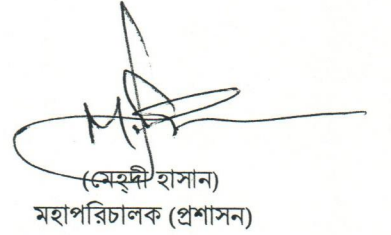 (মেহ্‌দী হাসান)
মহাপরিচালক (প্রশাসন)